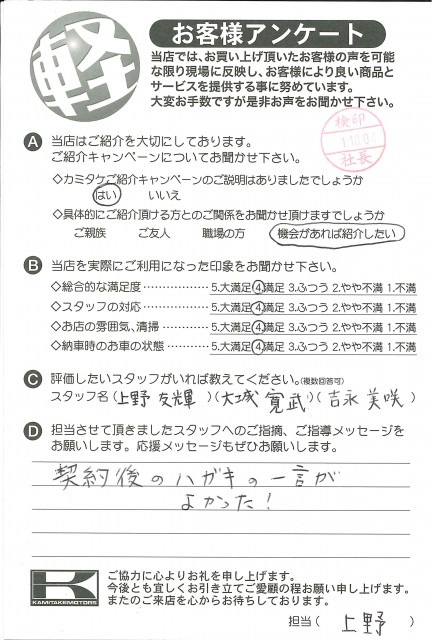 軽
お客様アンケート
当店では、お買い上げ頂いたお客様の声を可能
な限り現場に反映し、お客様により良い商品と
サービスを提供する事に努めています。
大変お手数ですが是非お声をお聞かせ下さい。
検印
社長
A 当店はご紹介を大切にしております。
ご紹介キャンペーンについてお聞かせ下さい。
◇カミタケご紹介キャンペーンのご説明はありましたでしょうか
はい いいえ
◇具体的にご紹介頂ける方とのご関係をお聞かせ頂けますでしょうか
ご親族 ご友人 職場の方 機会があれば紹介したい
B 当店を実際にご利用になった印象をお聞かせ下さい。
◇総合的な満足度 ・・・・・・・・・・・・・・・ 5.大満足 4.満足 3.ふつう 2.やや不満 1.不満
◇スタッフの対応 ・・・・・・・・・・・・・・・ 5.大満足 4.満足 3.ふつう 2.やや不満 1.不満
◇お店の雰囲気、清掃 ・・・・・・・・・ 5.大満足 4.満足 3.ふつう 2.やや不満 1.不満
◇納車時のお車の状態 ・・・・・・・・・ 5.大満足 4.満足 3.ふつう 2.やや不満 1.不満
C 評価したいスタッフがいれば教えてください。(複数回答可)
スタッフ名(上野 友輝)(大城 寛武)(吉永 美咲)
D 担当させて頂きましたスタッフへのご指摘、ご指導メッセージを
お願いします。応援メッセージもぜひお願いします。
契約後のハガキの一言が
よかった!
K
KAMITAKEMOTORS
ご協力に心よりお礼を申し上げます。
今後とも宜しくお引き立てご愛顧の程お願い申し上げます。
またのご来店を心からお待ちしております。
担当( 上野 )